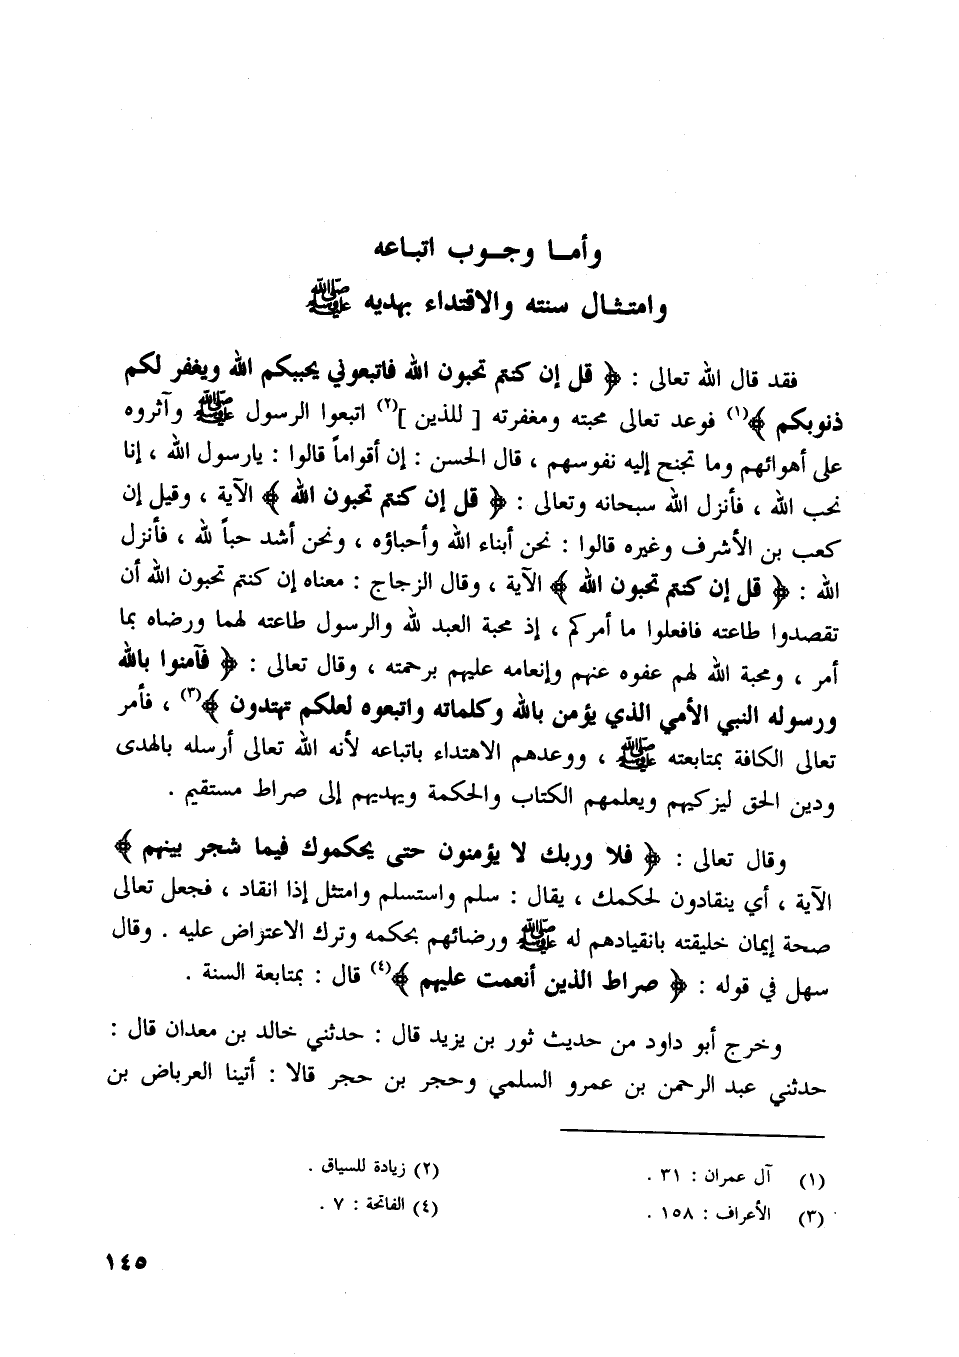 وأما وجوب اتباعه
وامتثال سنته والاقتداء بهديه ﷺ
فقد قال الله تعالى : ﴿ قل إن كنتم تحبون الله فاتبعوني يحببكم الله ويغفر لكم
ذنوبكم ﴾(١) فوعد تعالى محبته ومغفرته [ للذين ](٢) اتبعوا الرسول ﷺ وآثروه
على أهوائهم وما تجنح إليه نفوسهم ، قال الحسن : إن أقواماً قالوا : يارسول الله ، إنا
نحب الله ، فأنزل الله سبحانه وتعالى : ﴿ قل إن كنتم تحبون الله ﴾ الآية ، وقيل إن
كعب بن الأشرف وغيره قالوا : نحن أبناء الله وأحباؤه ، ونحن أشد حباً لله ، فأنزل
الله : ﴿ قل إن كنتم تحبون الله ﴾ الآية ، وقال الزجاج : معناه إن كنتم تحبون الله أن
تقصدوا طاعته فافعلوا ما أمركم ، إذ محبة العبد لله والرسول طاعته لهما ورضاه بما
أمر ، ومحبة الله لهم عفوه عنهم وإنعامه عليهم برحمته ، وقال تعالى : ﴿ فآمنوا بالله
ورسوله النبي الأمي الذي يؤمن بالله وكلماته واتبعوه لعلكم تهتدون ﴾(٣) ، فأمر
تعالى الكافة بمتابعته ﷺ ، ووعدهم الاهتداء باتباعه لأنه الله تعالى أرسله بالهدى
ودين الحق ليزكيهم ويعلمهم الكتاب والحكمة ويهديهم إلى صراط مستقيم .
وقال تعالى : ﴿ فلا وربك لا يؤمنون حتى يحكموك فيما شجر بينهم ﴾
الآية ، أي ينقادون لحكمك ، يقال : سلم واستسلم وامتثل إذا انقاد ، فجعل تعالى
صحة إيمان خليقته بانقيادهم له ﷺ ورضائهم بحكمه وترك الاعتراض عليه . وقال
سهل في قوله : ﴿ صراط الذين أنعمت عليهم ﴾(٤) قال : بمتابعة السنة .
وخرج أبو داود من حديث ثور بن يزيد قال : حدثني خالد بن معدان قال :
حدثني عبد الرحمن بن عمرو السلمي وحجر بن حجر قالا : أتينا العرباض بن
(١) آل عمران : ٣١ .
(٢) زيادة للسياق .
(٣) الأعراف : ١٥٨ .
(٤) الفاتحة : ٧ .
١٤٥